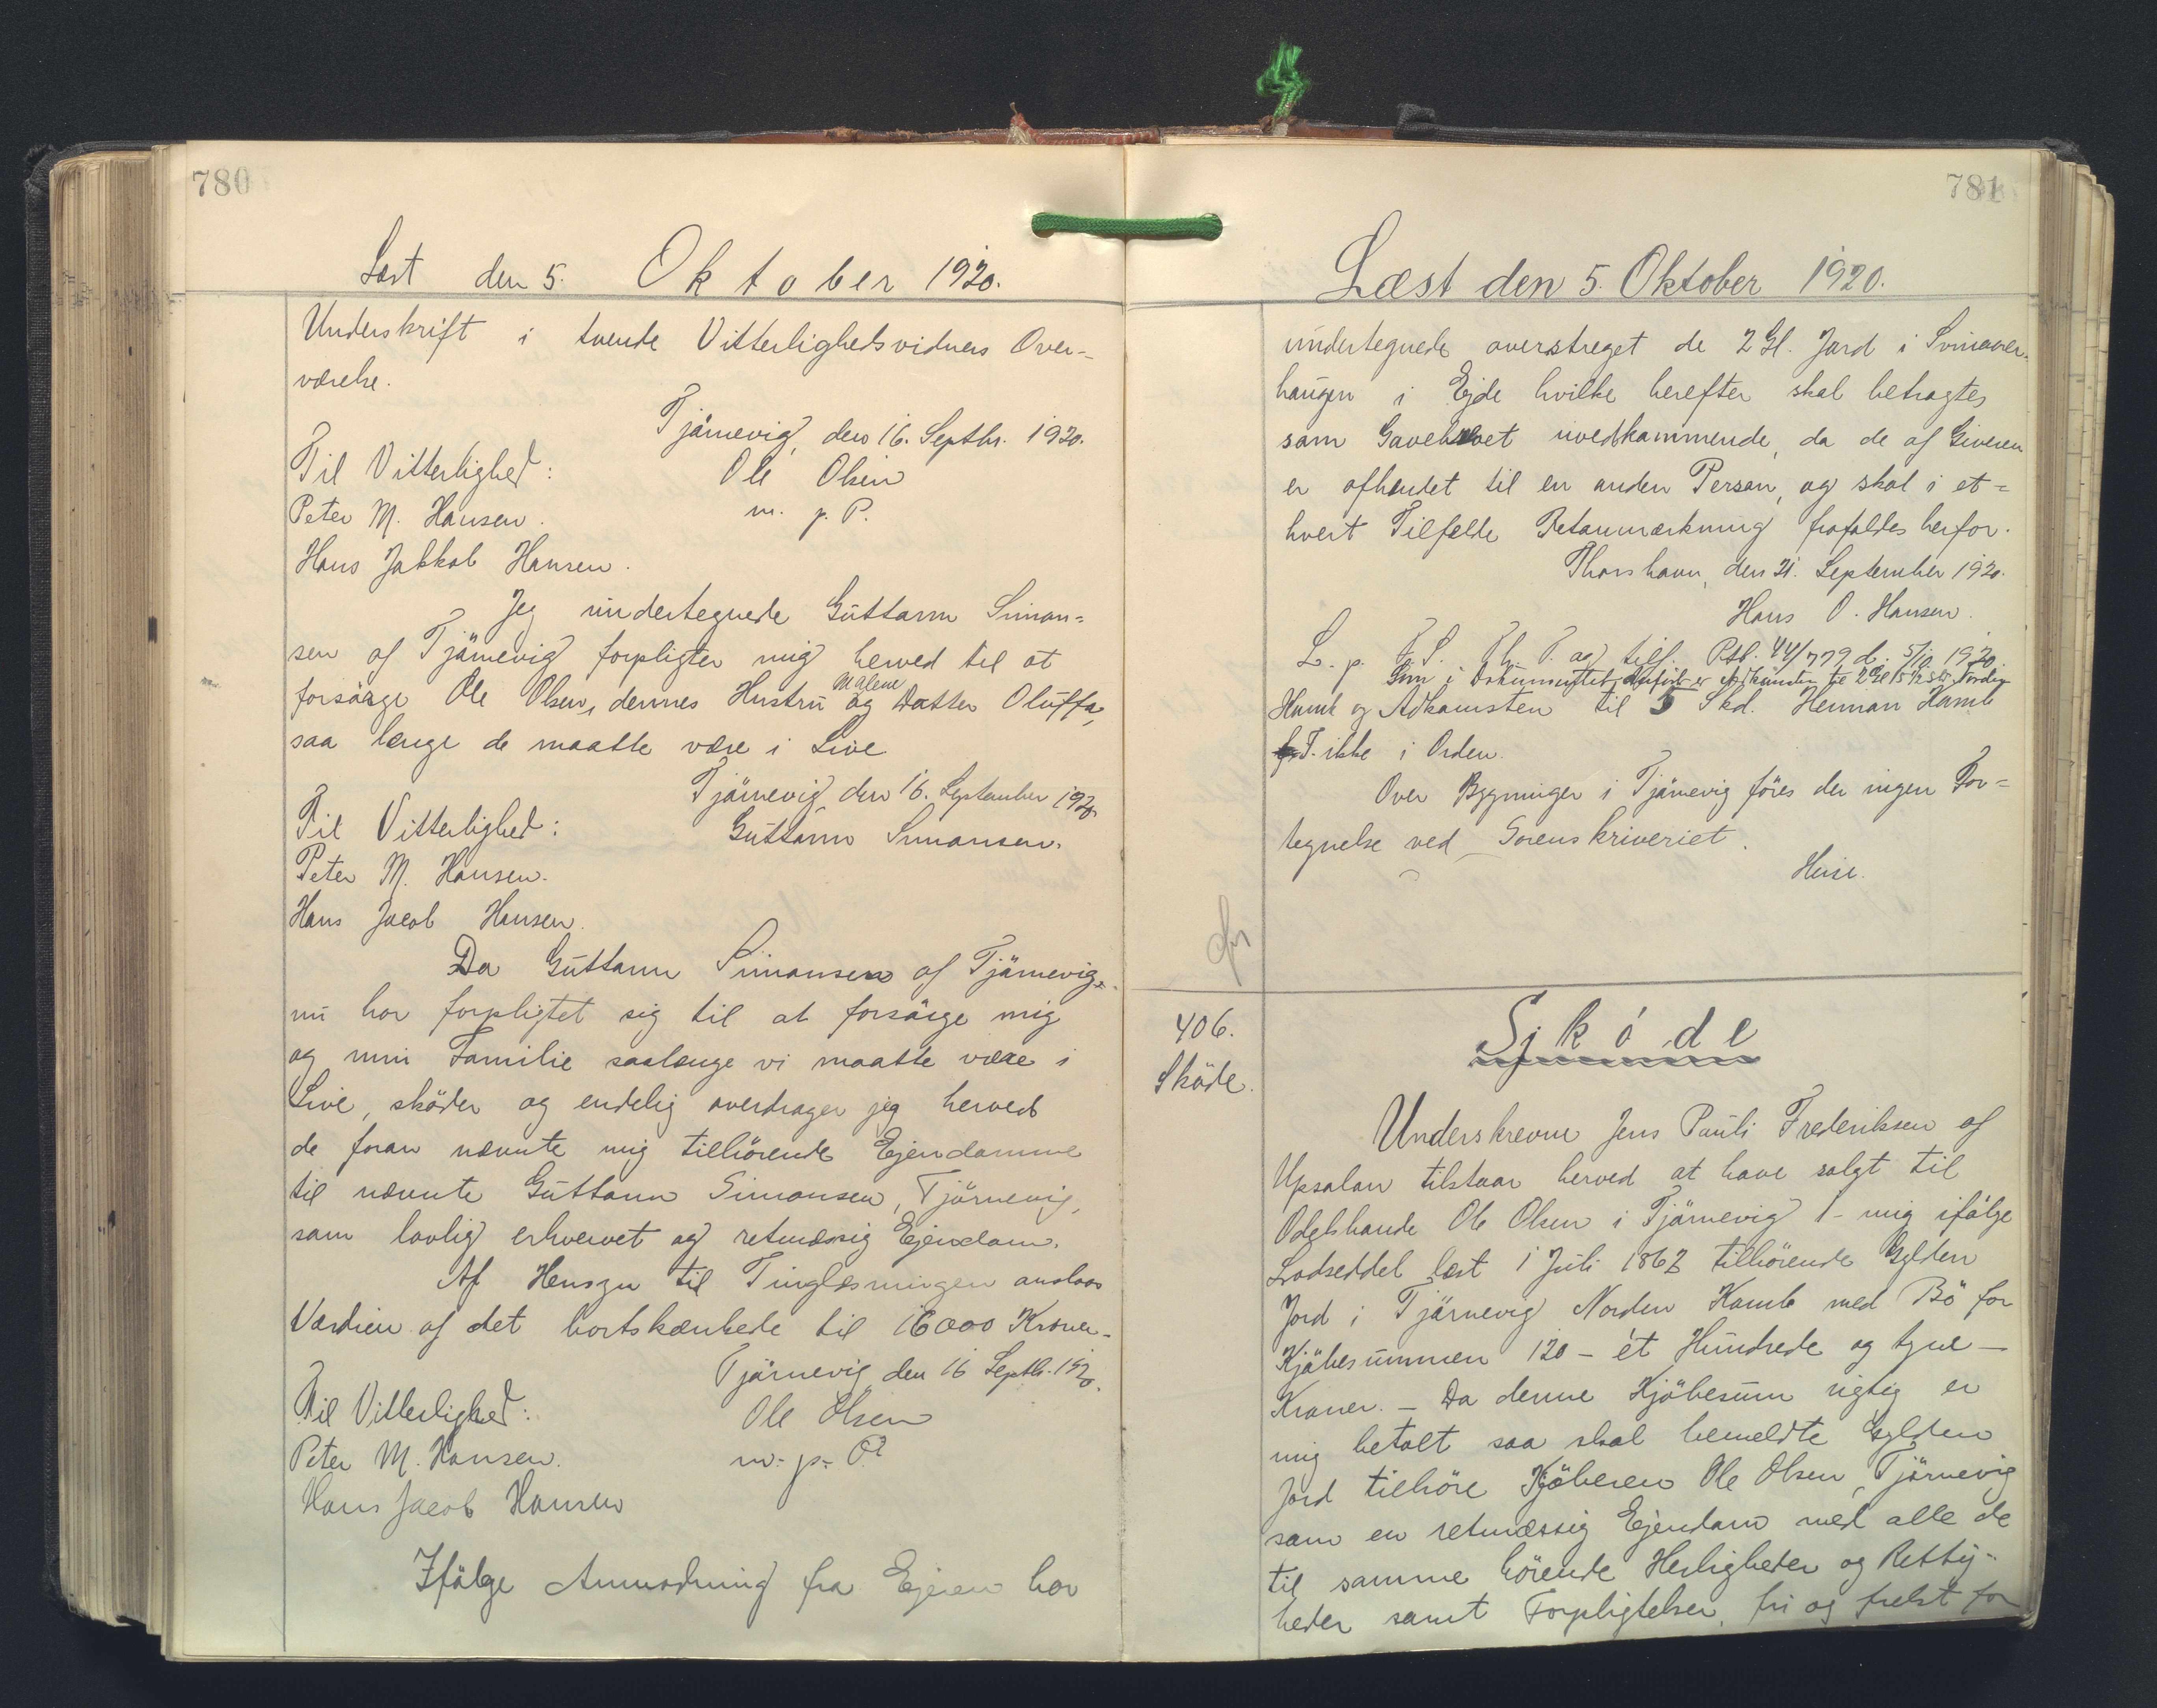 780
Læst den 5. Oktober 1920.
Underskrift i tvende Vitterlighedsvidners Over-
værelse.
Tjörnevig, den 16. Septbr. 1920.
Til Vitterlighed:
Ole Olsen
Peter M. Hansen.
m. p. P.
Hans Jakkob Hansen.
Jeg undertegnede Guttorm Simon-
sen af Tjörnevig forpligter mig herved til at
forsörge Ole Olsen, dennes Hustru Malene og Datter Oluffa,
saa længe de maatte være i Live
Tjörnevig den 16. September 1920
Til Vitterlighed:
Guttorm Simonsen.
Peter M. Hansen.
Hans Jacob Hansen.
Da Guttorm Simonsen af Tjörnevig
nu har forpligtet sig til at forsörge mig
og min Familie saalænge vi maatte være i
Live, sköder og endelig overdrager jeg herved
de foran nævnte mig tilhörende Ejendomme
til nævnte Guttorm Simonsen, Tjörnevig,
som lovlig erhvervet og retmæssig Ejendom.
Af Hensyn til Tinglæsningen anslaas
Værdien af det bortskænkede til 16000 Kroner.
Tjörnevig den 16 Septbr. 1920.
Til Vitterlighed:
Ole Olsen
Peter M. Hansen.
m. p. P.
Hans Jacob Hansen
Ifölge Anmodning fra Ejeren har
781
Læst den 5. Oktober 1920.
undertegnede overstreget de 2 Gl. Jord i Svinaver-
haugen i Ejde hvilke herefter skal betragtes
som Gavebrevet uvedkommende, da de af Giveren
er afhændet til en anden Person, og skal i et-
hvert Tilfelde Retanmærkning frafaldes herfor.
Thorshavn, den 21. September 1920.
Hans O. Hansen.
L. p. F. S. Th. P. og tilf. Ptb. 44/779 d. 5/10 1920
Som i Dokumentet anfört er Adkomsten til 2 Gl 15 1/2 Sk. Nordi
Hamb og Adkomsten til 5 Skd. Heman Hamb
T. ikke i Orden.
Over Bygninger i Tjörnevig föres der ingen For-
tegnelse ved Sorenskriveriet.
Heise.
406.
Sköde.
Skóde
Underskrevne Jens Pauli Frederiksen af
Upsalan tilstaar herved at have solgt til
Odelsbonde Ole Olsen i Tjörnevig 1 - mig ifölge
Lodseddel læst 1 Juli 1862 tilhörende Gylden
Jord i Tjörnevig Norden Hamb med Bö for
Kjöbesummen 120 - ét Hundrede og tyve -
Kroner. - Da denne Kjöbesum rigtig er
mig betalt saa skal bemeldte Gylden
Jord tilhöre Kjöberen Ole Olsen, Tjörnevig
som en retmæssig Ejendom med alle de
til samme hörende Herligheder og Rettig-
heder samt Forpligtelser, fri og frelst for